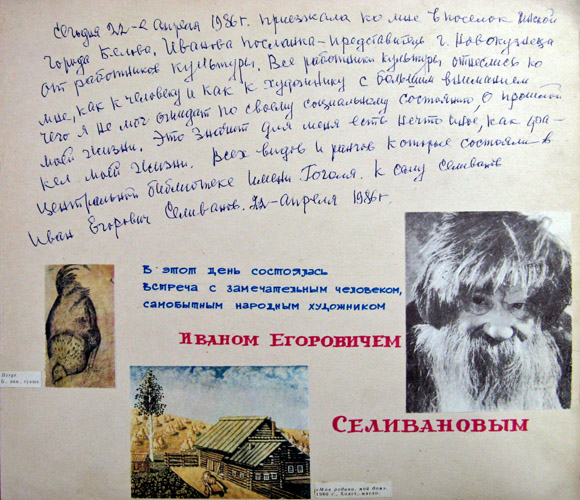 Сегодня 22-е апреля 1986г. приезжала ко мне в поселок Инской
города Белова, Иванова посланка-представитель г. Новокузнеца
от работников культуры. Все работники культуры, отнеслись ко
мне, как к человеку и как к художнику с большим вниманием
чего я не мог ожидать по своему социальному состоянию. О прошлой
моей жизни. Это значит для меня есть нечто иное, как
кел моей жизни. Всех видов и рангов которые состояли-в
центральной библиотеке имени Гоголя. К сему Селиванов
Иван Егорович Селиванов. 22-апреля 1986г.
В этот день состоялась
встреча с замечательным человеком,
самобытным народным художником
Иваном Егоровичем
Селивановым
Петух
«Моя родина, мой дом».
1960 г., Холст, масло.